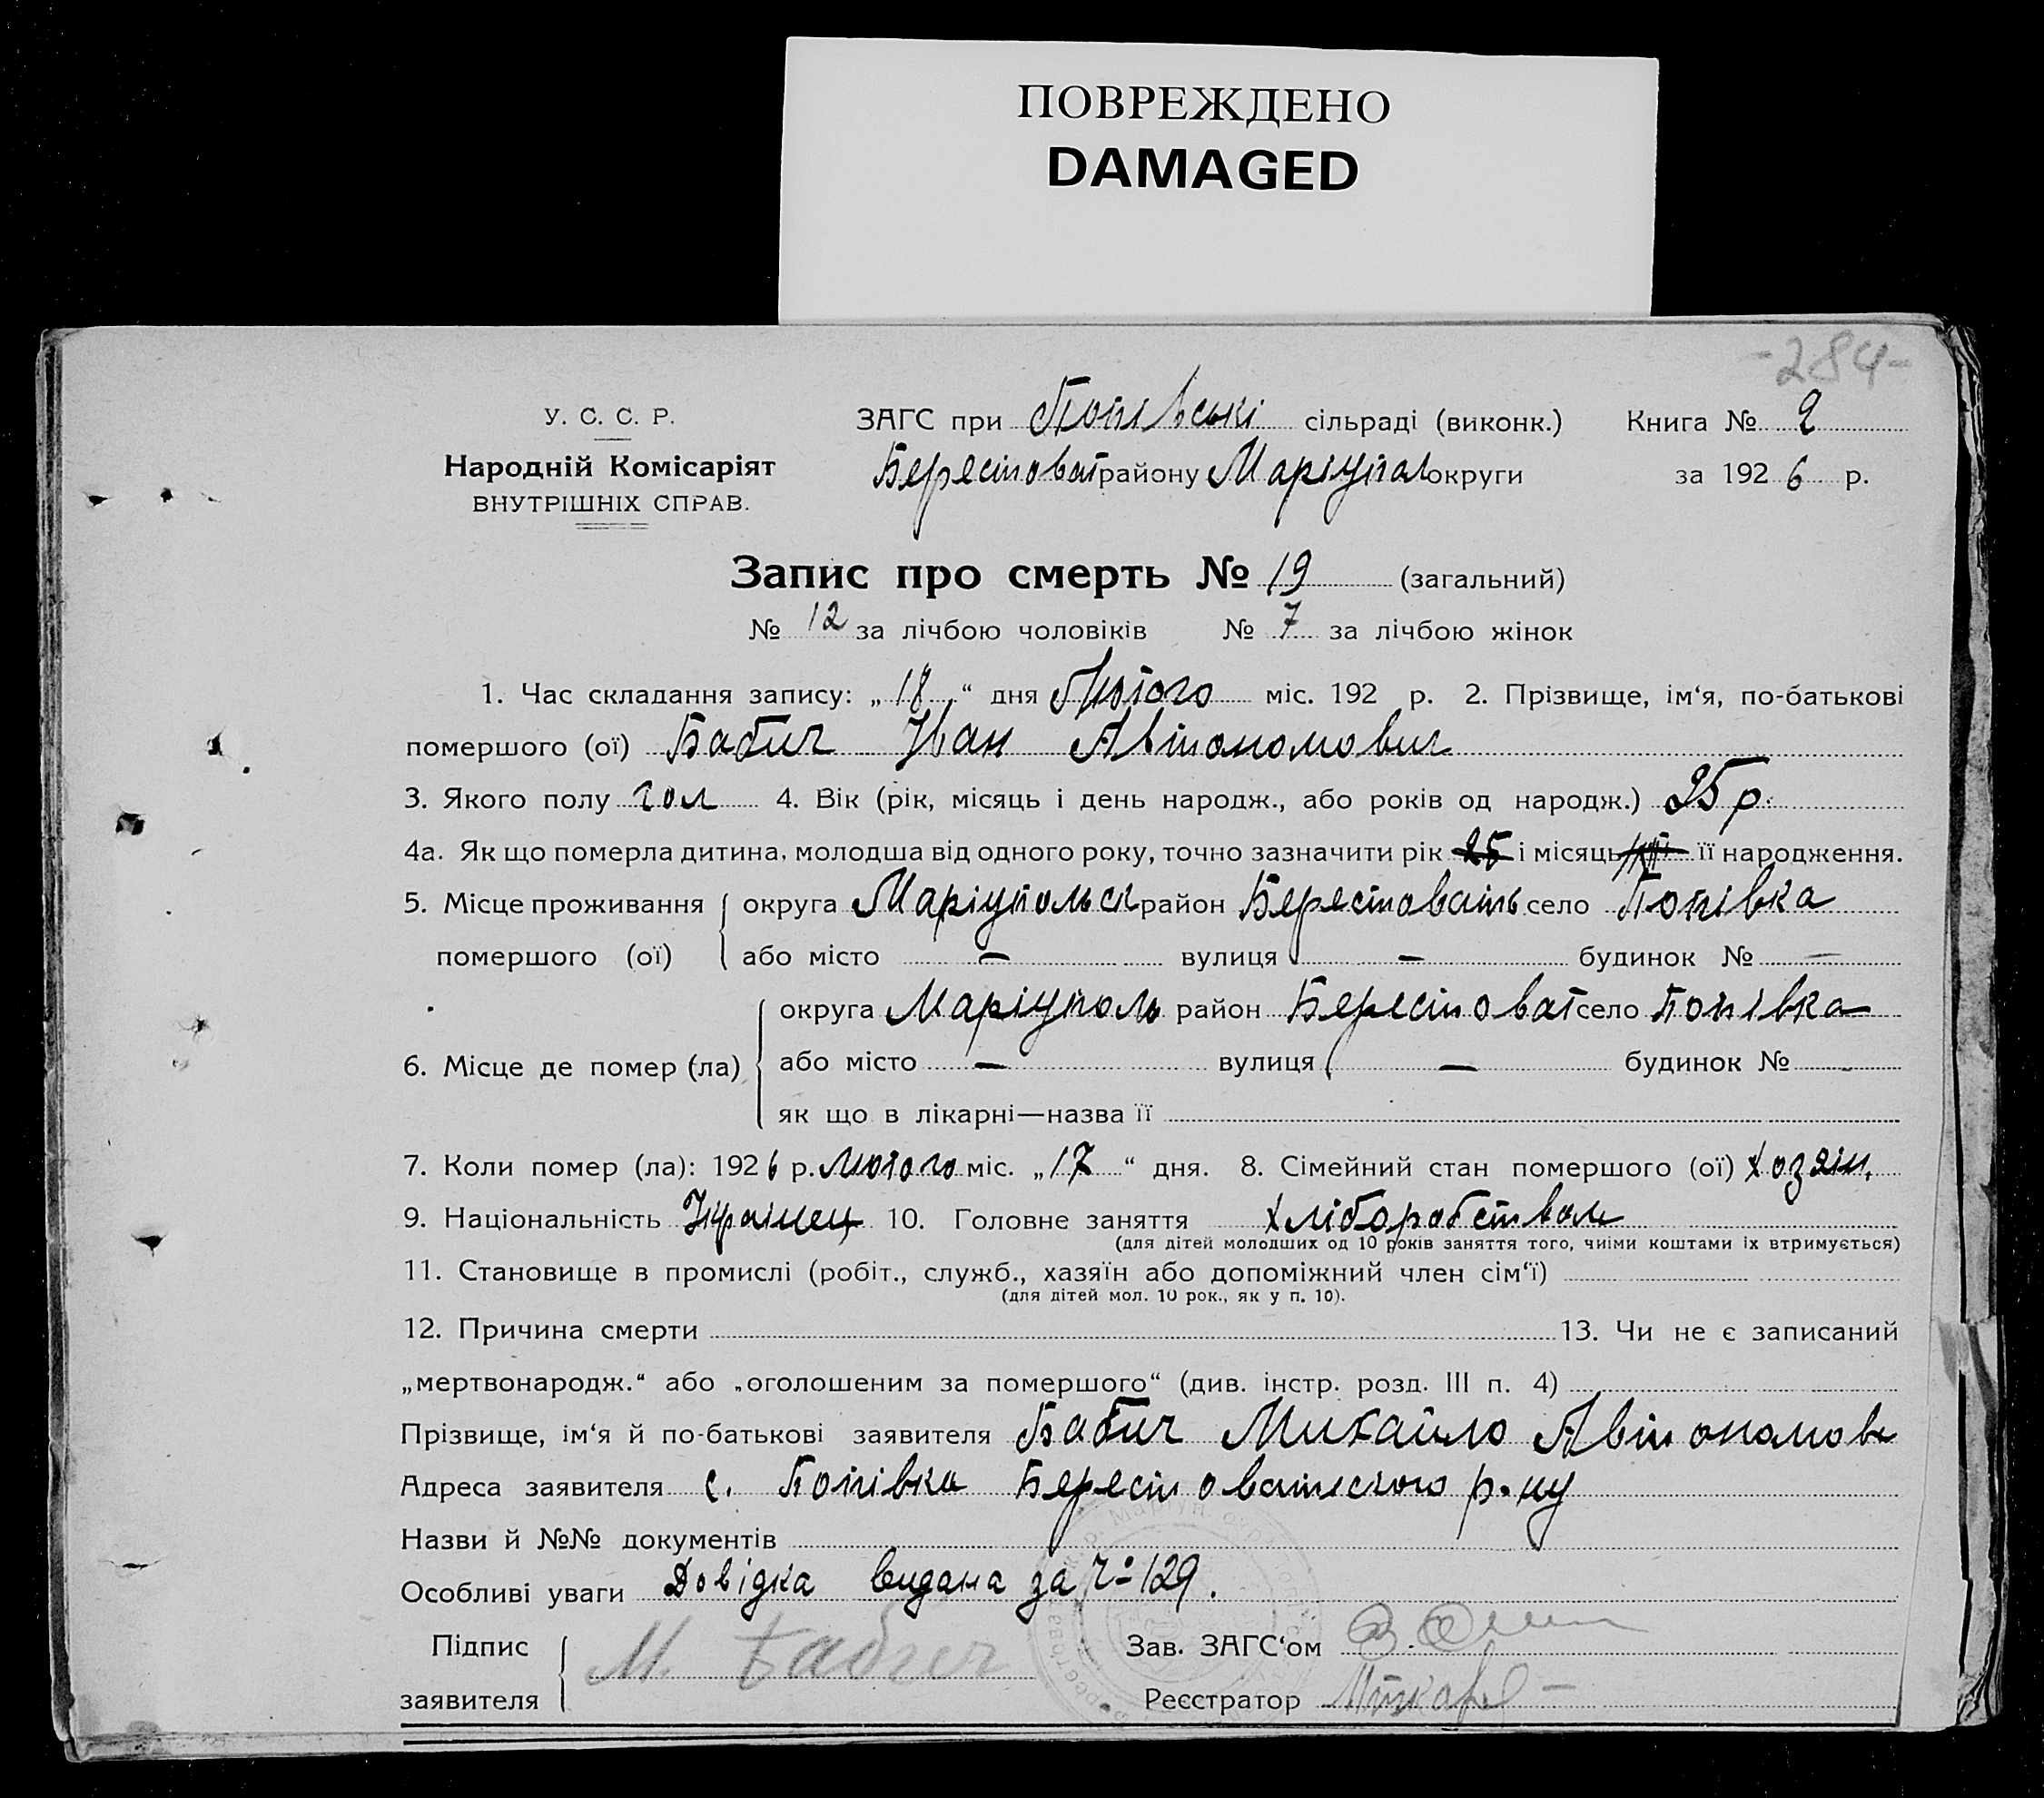 ПОВРЕЖДЕНО
DAMAGED
-284-
У. С. С. Р.
Народній Комісаріят
ВНУТРІШНІХ СПРАВ.
ЗАГС при Попівські сільраді (виконк.) Книга № 2
Берестоват району Маріупол округи за 1926 р.
Запис про смерть № 19 (загальний)
№ 12 за лічбою чоловіків № 7 за лічбою жінок
1. Час складання запису: „18“ дня Лютого міс. 192 р. 2. Прізвище, ім‘я, по-батькові
помершого (ої) Бабич Іван Автономович
3. Якого полу чол 4. Вік (рік, місяць і день народж., або років од народж.) 25 р.
4а. Як що померла дитина, молодша від одного року, точно зазначити рік 25 і місяць її народження.
5. Місце проживання округа Маріупольск район Берестовать село Попівка
помершого (ої) або місто — вулиця — будинок № —
округа Маріуполь район Берестоват село Попівка
6. Місце де помер (ла) або місто — вулиця — будинок № -
як що в лікарні—назва її
7. Коли помер (ла): 1926 р. Лютого міс. „17“ дня. 8. Сімейний стан помершого (ої) хозяін.
9. Національність Украінец 10. Головне заняття хліборобством
(для дітей молодших од 10 років заняття того, чиїми коштами їх втримується)
11. Становище в промислі (робіт., служб., хазяїн або допоміжний член сім‘ї)
(для дітей мол. 10 рок., як у п. 10).
12. Причина смерти 13. Чи не є записаний
„мертвонародж.“ або „оголошеним за помершого“ (див. інстр. розд. III п. 4)
Прізвище, ім‘я й по-батькові заявителя Бабич Михайло Автономов
Адреса заявителя с. Попівка Берестоватського р-ну
Назви й №№ документів
Особливі уваги Довідка видана за № 129.
Підпис М. Бабич Зав. ЗАГС‘ом
заявителя Реєстратор